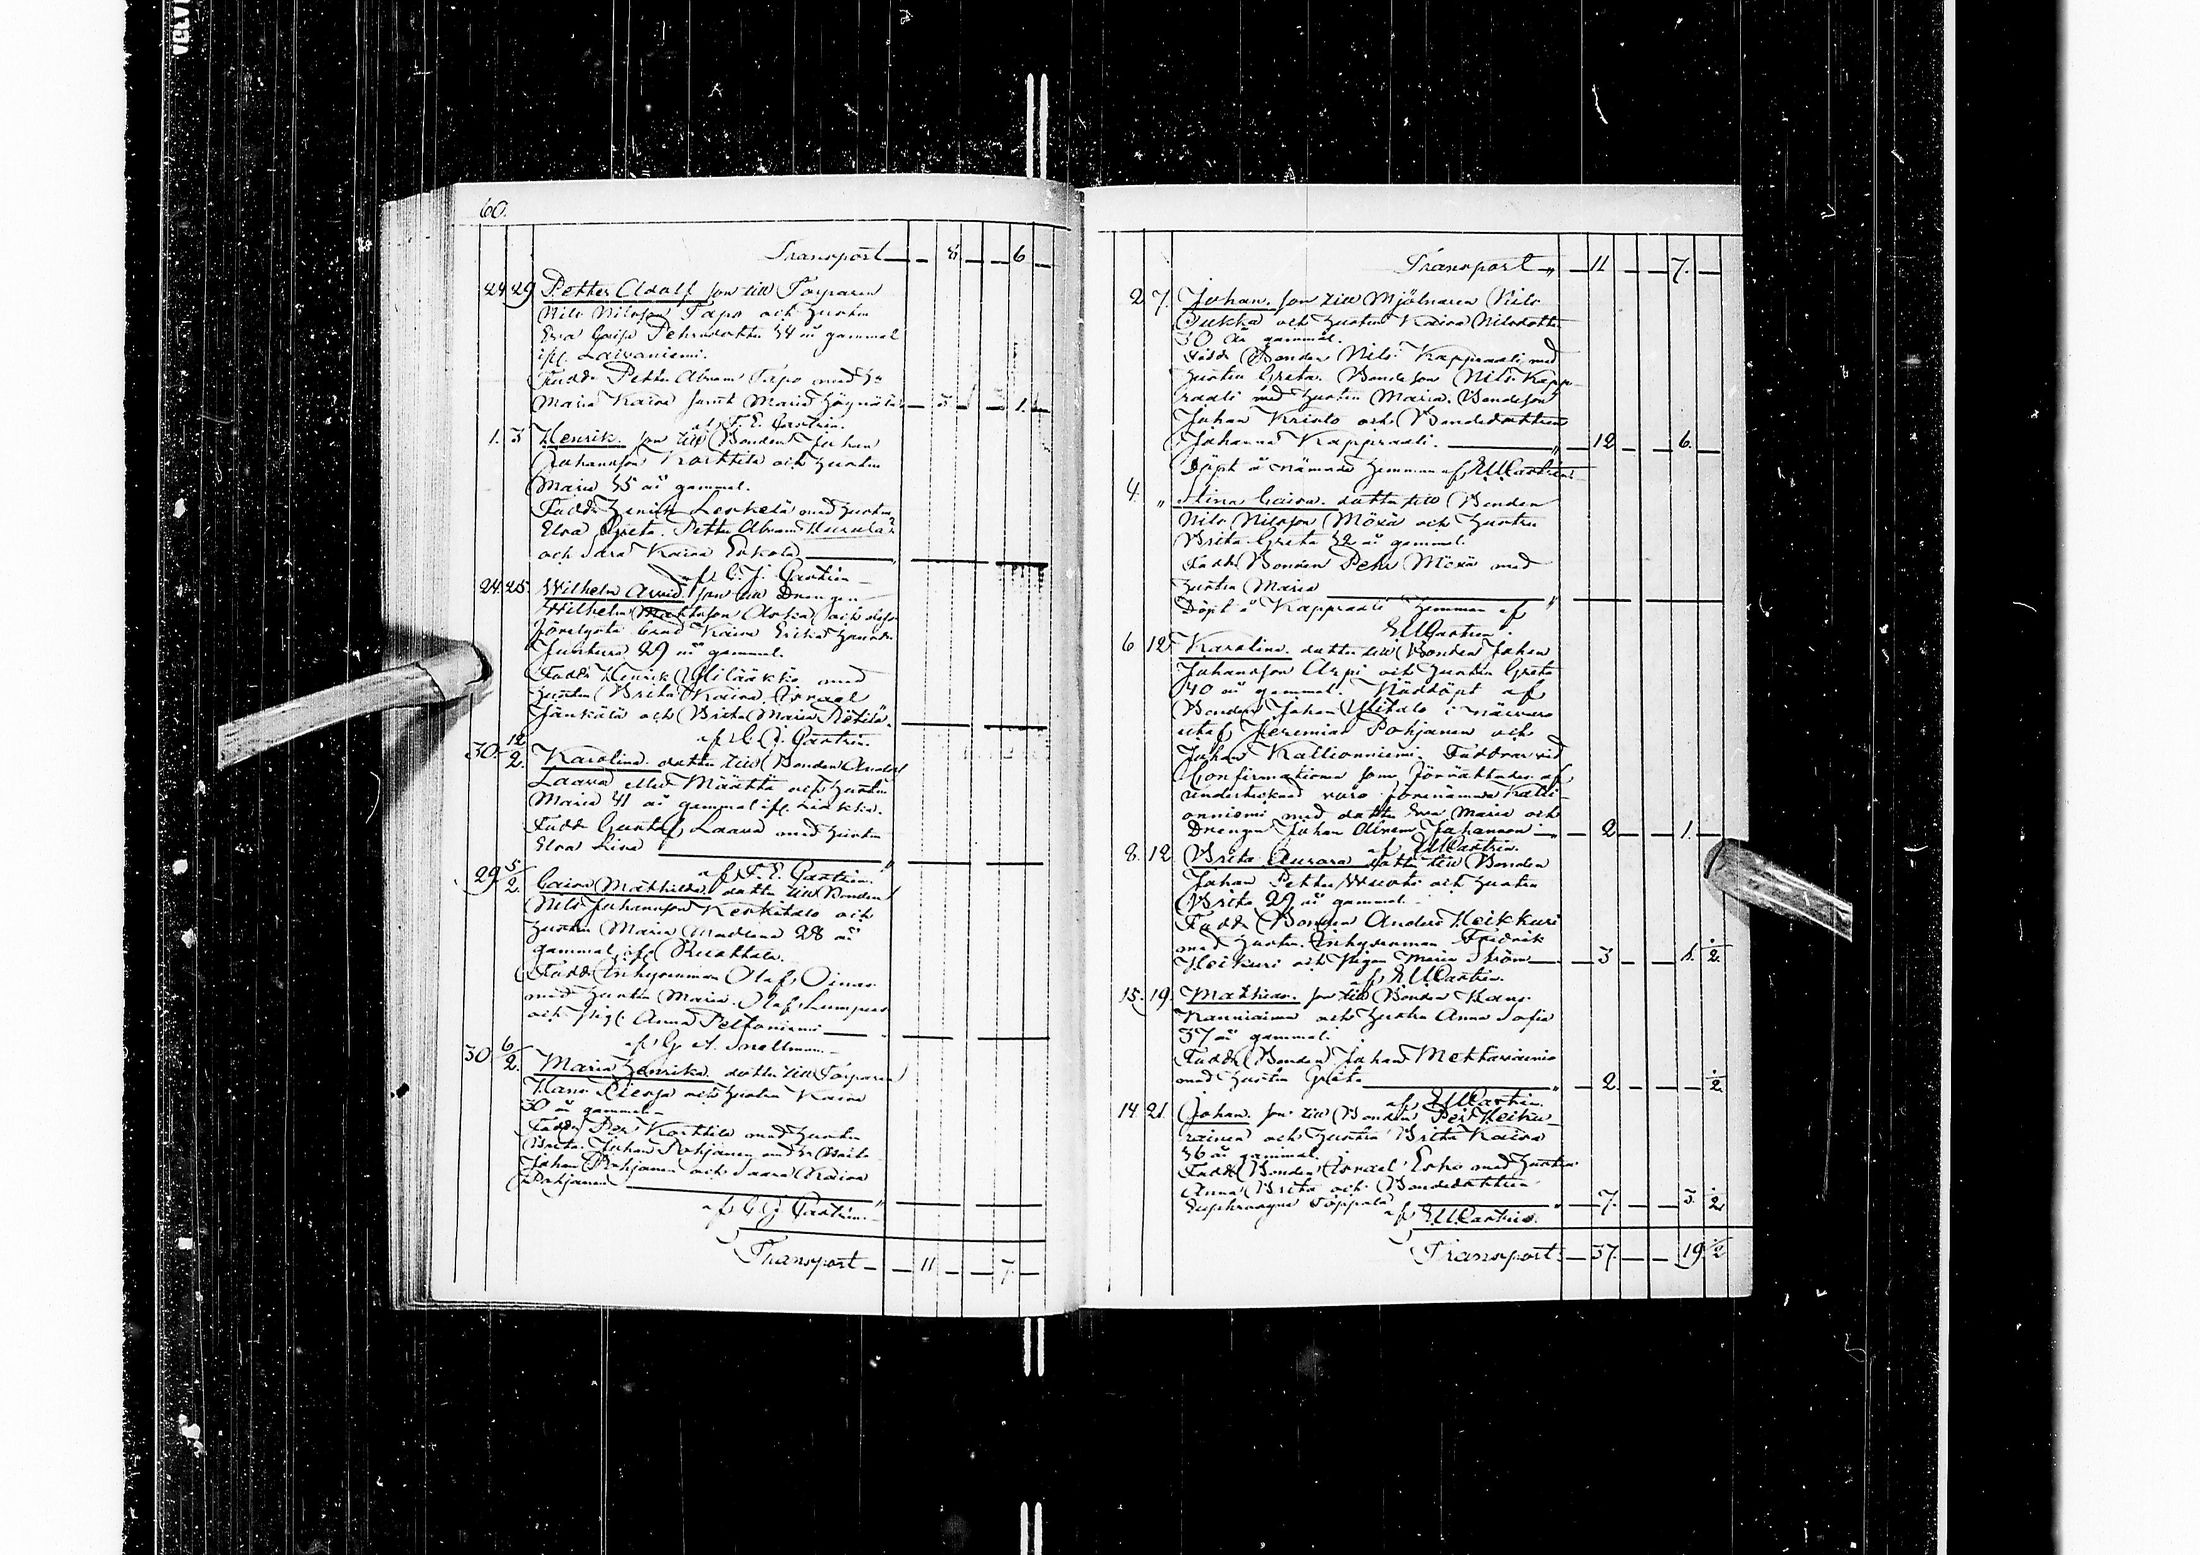 60.
Transport 8 6
24 29 Petter Adolf son till Torparen
Nils Nilsson Tapo och hustru
Eva Pehrsdotter 34 år gammal
ifr. Laivaniemi.
Fadd. Petter Abram Tapo med h:u
Maria Kaisa samt Maria 3 1.
af F. E. Castrén.
1. 3 Henrik. son till Bonden Johan
Johansson Karkkila och hustru
Maria 35 år gammal.
Fadd. Henrik med hustru
Elsa Greta. Petter Abram
och Sara Kaisa Erkola
af C. J. Castrén
24. 25. Wilhelm Arvid. son till Drengen
Wilhelm Mattsson och dess
Kaisa Erika
29 år gammal.
Fadd. Henrik Yliläakkö med
hustru Brita Kaisa, Israel
Jänkälä och Brita Maria
af C. J. Castrén.
30. 12/2. Karolina. dotter till Bonden Anders
Laava eller Määttä och hustru
Maria 41 år gammal ifr.
Fadd. Gustaf Laava med hustru
Elsa Lisa
af F. E. Castrén.
29 5/2. Caisa Mathilda. dotter till Bonden
Nils Johansson Keskitalo och
hustru Maria Madlena 28 år
gammal, ifr. Ruottala.
Fadd. Inhysesman Olaf Oinas
med hustru Maria. Olaf Lumpus
och pig. Anna Peltoniemi
af G. A. Snellman.
30 6/2. Maria Henrika. dotter till Torparen
Hans och hustru Kaisa
30 år gammal
Fadd. Per Karkkila med hustru
Brita. Johan Pohjanen med h:u Brita
Johan Pohjanen och Saara Kaisa
Pohjanen
af C. J. Castrén.
Transport 11 7.
Transport 11 7.
2. 7. Johan. son till Mjölnaren Nils
Jukka och hustru Kaisa Nilsdotter
30 år gammal.
Fadd. Bonden Nils Kappraali med
hustru Greta. Bondeson Nils Kapp-
raali med hustru Maria. Bondeson
Johan Kristo och Bondedottren
Johanna Kappraali. 12 6.
Döpt å nämnde hemman af E. W. Castrén.
4. " Stina Caisa. dotter till Bonden
Nils Nilsson Möxä och hustru
Brita Greta 32 år gammal.
Fadd. Bonden Pehr Möxä med
hustru Maria
Döpt å Kappraali hemman af
E. W. Castrén.
6 12 Karolina. dotter till Bonden Johan
Johansson Arpi och hustru Greta
40 år gammal. Nöddöpt af
Bonden Johan Ylitalo i närvaro
utaf Jeremias Pohjanen och
Johan Kallionniemi. Faddrar vid
Confirmationen som förrättades af
undertecknad voro förenämnda Kalli-
onniemi med dotter Eva Maria och
Drengen Johan Abram Johansson 2 1.
af E. W. Castrén.
8. 12 Brita Aurora dotter till Bonden
Johan Petter och hustru
Brita 29 år gammal.
Fadd. Bonden Anders Heikkuri
med hustru. Inhysesman Fredrik
Heikuri och pigan Maria Ström 3 1. 1/2.
af E. W. Castrén.
15. 19. Mathias. son till Bonden Hans
Kanniainen och hustru Anna Sofia
37 år gammal.
Fadd. Bonden Johan Mettavainio
med hustru Greta 2. 1/2.
af E. W. Castrén.
14 21. Johan. son till Bonden Per Heiku-
rainen och hustru Brita Kaisa
36 år gammal.
Fadd. Bonden Israel Esko med hustru
Anna Brita och Bondedottren
Euphrosyne Töppölä 7. 3. 1/2
af E. W. Castrén.
Transport: 37. 19 1/2